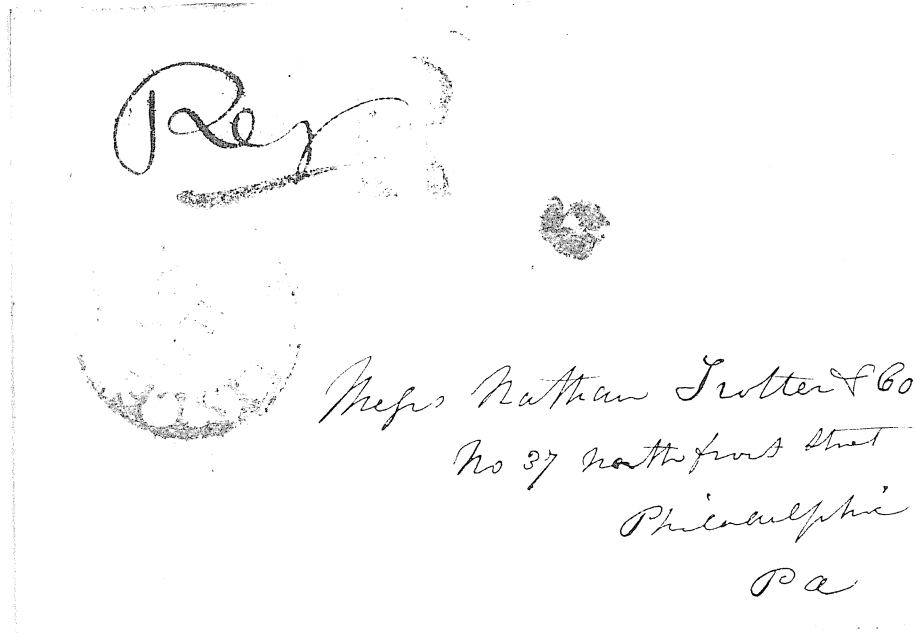 Reg
Messrs Nathan Trotter & Co
No 37 North front Street
Philadelphia
Pa